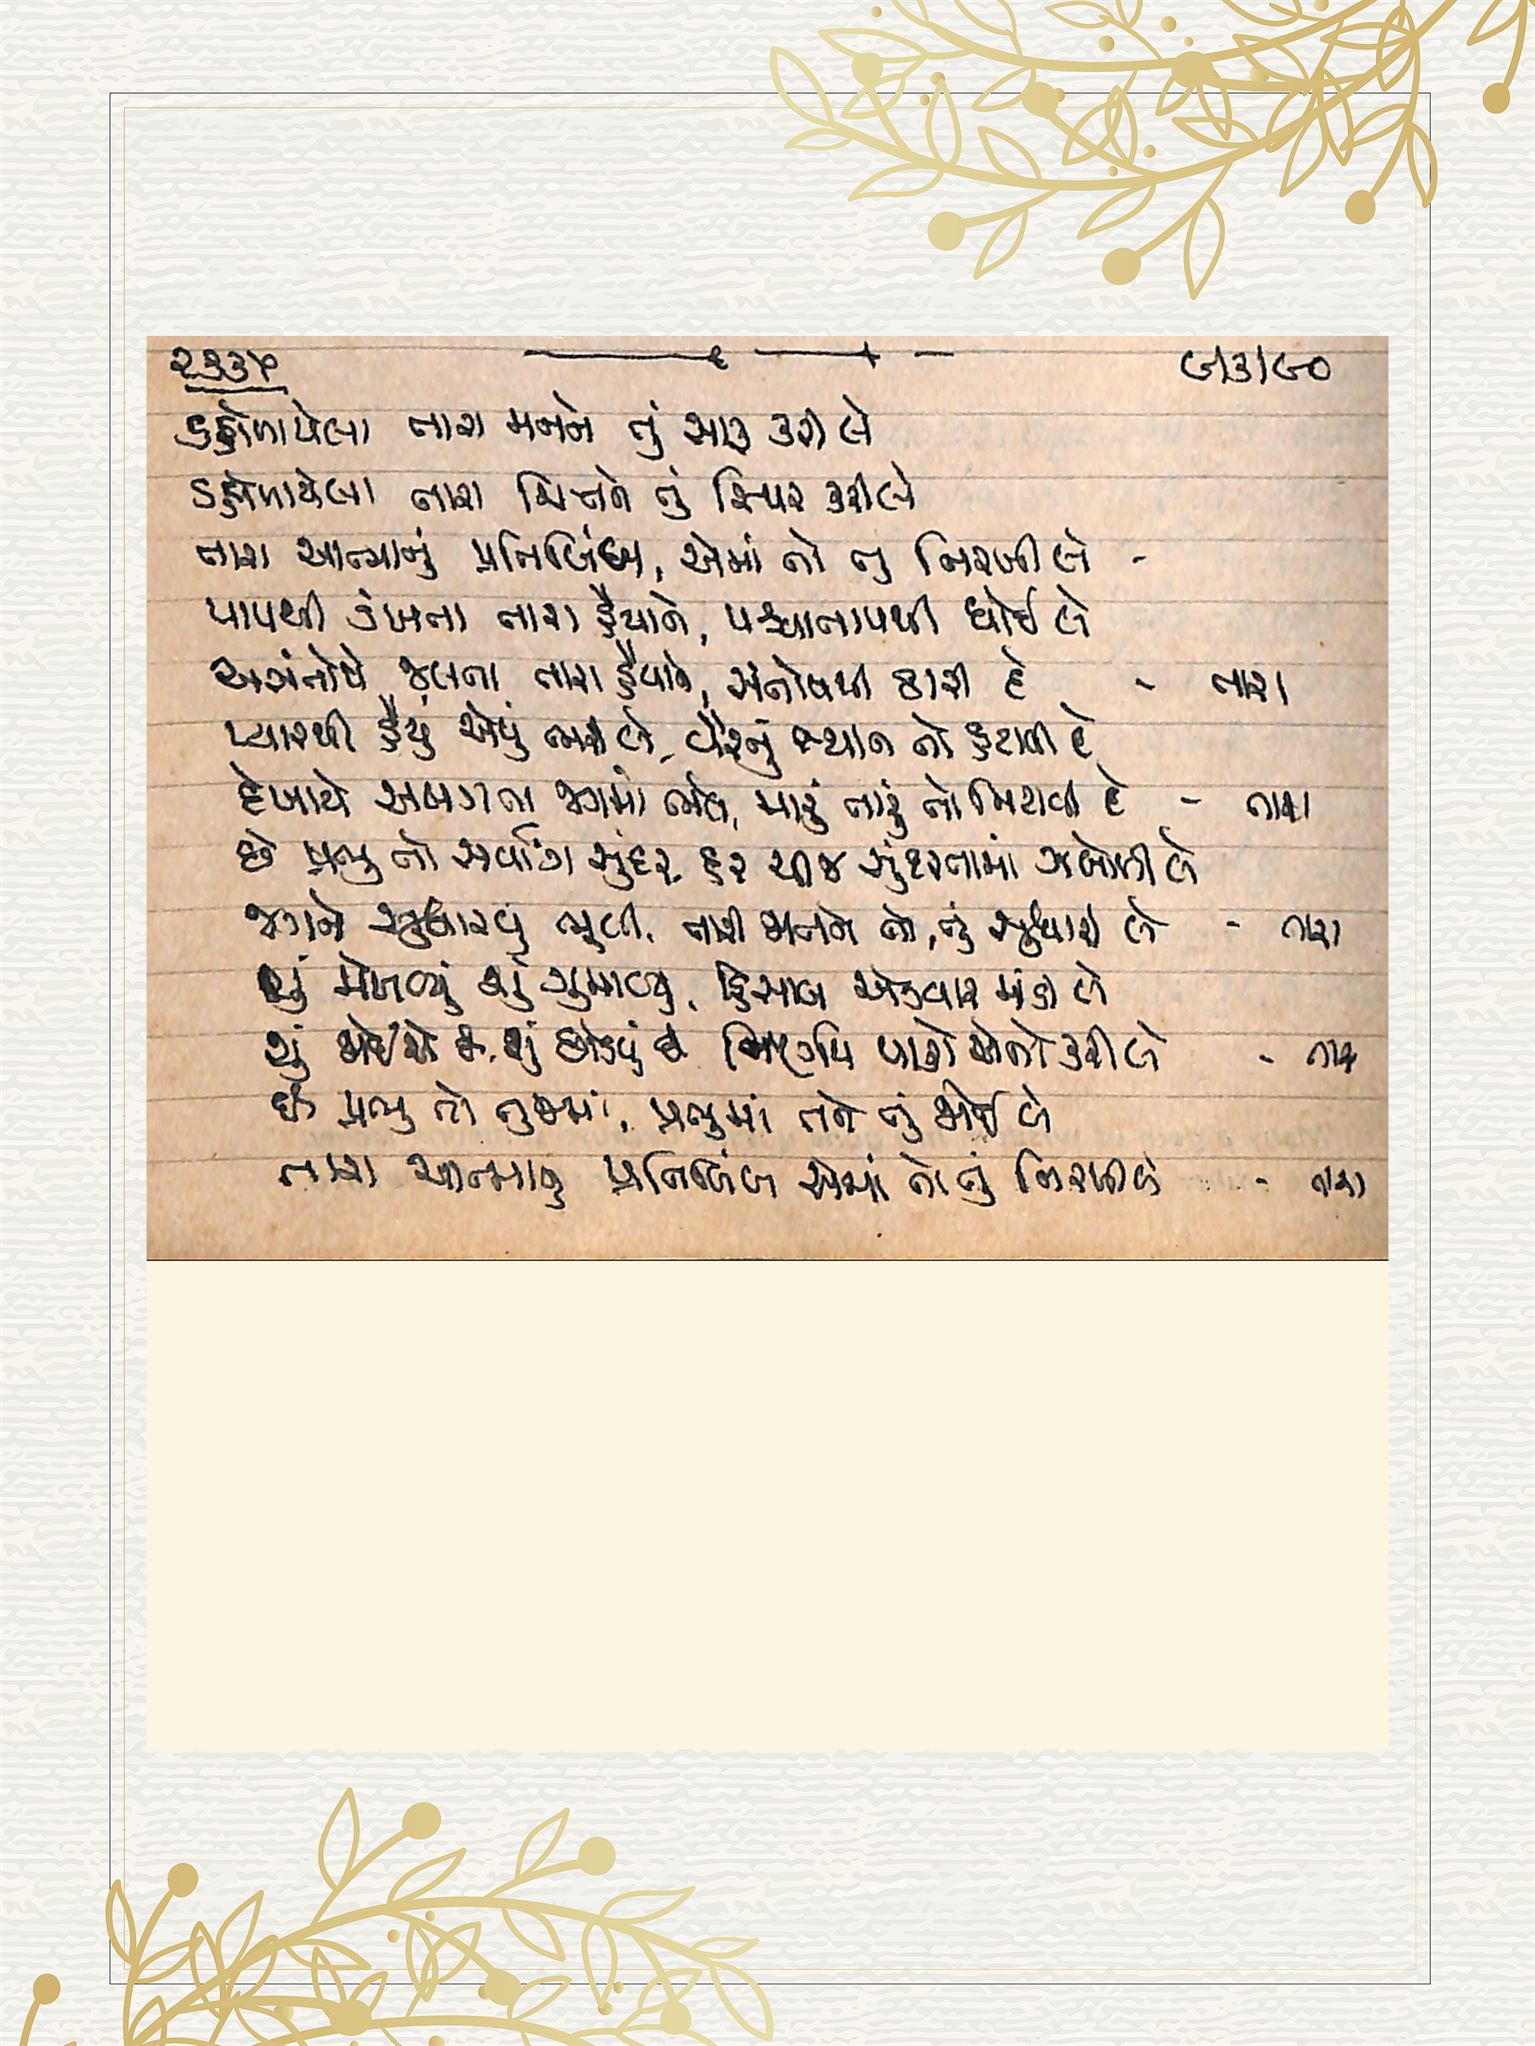 ૨૩૩૫ ૯/૩/૯૦
ડહોળાયેલા તારા મનને તું સાફ કરી લે
ડહોળાયેલા તારા ચિત્તને તું સ્થિર કરી લે
તારા આત્માનું પ્રતિબિંબ, એમાં તો તુ નિરખી લે -
પાપથી ડંખતા તારા હૈયાને, પશ્ચાતાપથી ધોઈ લે
અસંતોષે જલતા તારા હૈયાને, સંતોષથી ઠારી દે - તારા
પ્યારથી હૈયું એવું ભરી લે, વૈરનું સ્થાન તો હટાવી દે
દેખાયે અલગતા જગમાં ભલે, મારું તારું તો મિટાવી દે - તારા
છે પ્રભુ તો સર્વાંગ સુંદર, હર ચીજ સુંદરતામાં ઝબોળી લે
જગને સુધારવું ભૂલી, તારા મનને તો, તું સુધારી લે - તારા
શું મેળવ્યું શું ગુમાવ્યુ, હિસાબ એકવાર માંડી લે
શું જોઈશે છે, શું છોડવું છે નિર્ણય પાકો એનો કરી લે - તારા
છે પ્રભુ તો તુજમાં, પ્રભુમાં તને તું જોઈ લે
તારા આત્માનુ પ્રતિબિંબ એમાં તો તું નિરખી લે - તારા